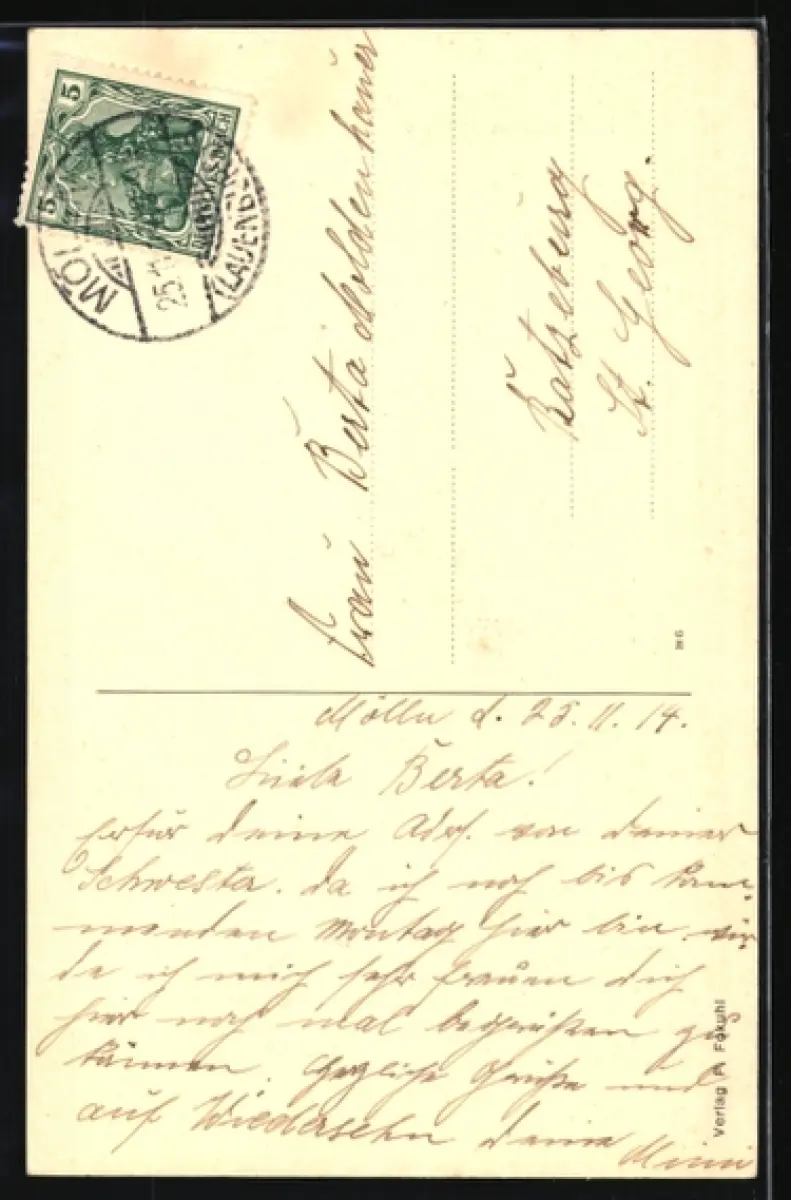 5
5
DEUTSCHES REICH
MÖL
25.11
(LAUENB
Frau Berta Moldenhauer
Ratzeburg
St. Georg.
Mölln d. 25.11.14.
Liebe Berta!
Erfur deine Adrs. von deiner
Schwester. Da ich noch bis kom-
menden Montag hier bin wür
de ich mich sehr freuen dich
hier noch mal begrüßen zu
können. Herzliche Grüße und
auf Wiedersehn deine
Mimi
Verlag Fokuhl